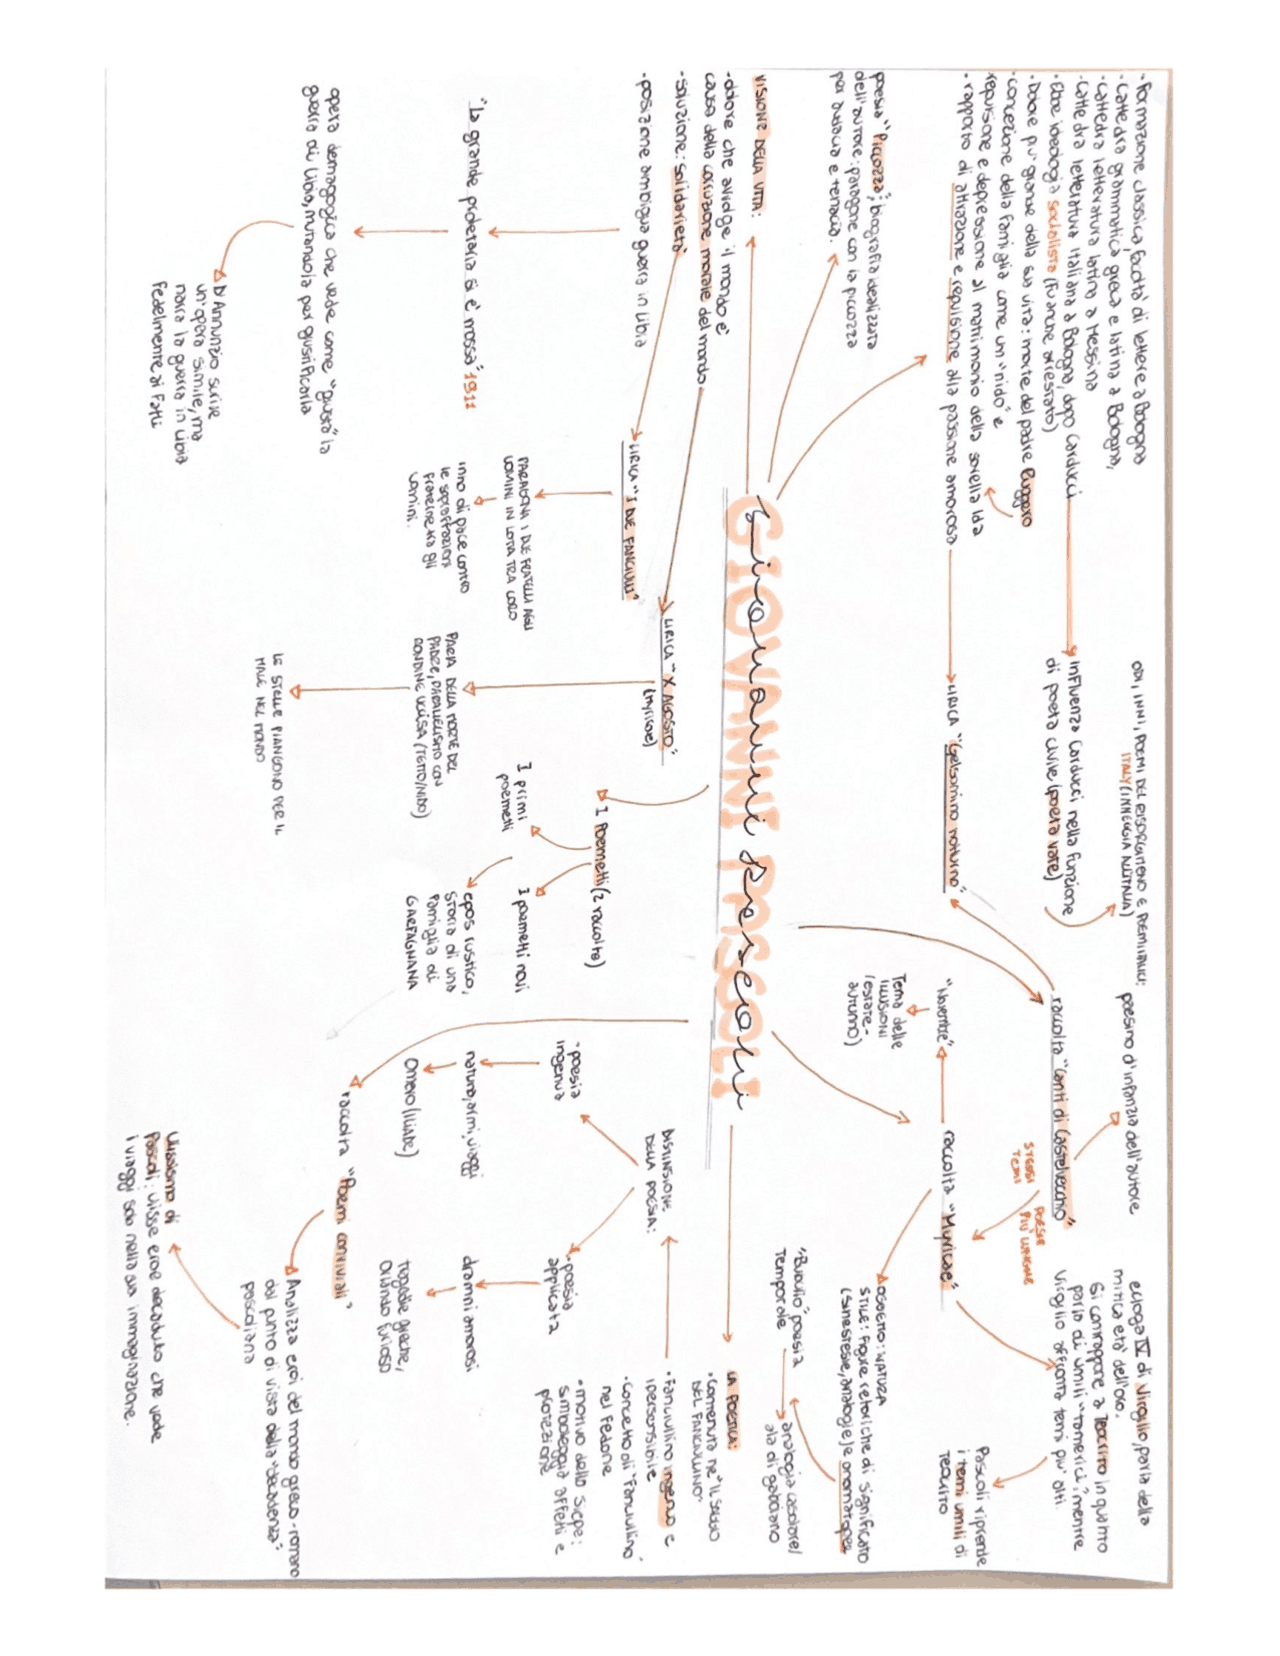 • Formazione classica, facoltà di lettere a Bologna
• Cattedra grammatica greca e latina a Bologna,
• Cattedra letteratura latina a Messina
• Cattedra letteratura italiana a Bologna, dopo Carducci
• Ebbe ideologia socialista (fu anche arrestato)
• Dolore piu' grande della sua vita: morte del padre Ruggero
• concezione della famiglia come un "nido" e
repulsione e depressione al matrimonio della sorella Ida
• rapporto di attrazione e repulsione alla passione amorosa
ODI, INNI, POEMI DEL RISORGIMENTO E POEMI ITALICI:
ITALY (INNEGGIA ALL'ITALIA)
influenza Carducci nella funzione
di poeta civile (poeta vate)
LIRICA "Gelsomino notturno"
poesino d'infanzia dell'autore
raccolta "Canti di Castelvecchio"
STESSI
TEMI
POESIE
PIU' LUNGHE
ecloga IV di Virgilio, parla della
mitica età dell'oro.
Si contrappone a Teocrito in quanto
parla di umili "tamerici", mentre
Virgilio affronta temi piu' alti
Pascoli riprende
i temi umili di
TEOCRITO
raccolta "Myricae"
"Novembre"
Tema delle
ILLUSIONI
(estate-
autunno)
OGGETTO: NATURA
STILE: Figure retoriche di significato
(sinestesie, analogie) e onomatopee
"Il tuono" poesia
Temporale
analogia casolare/
ala di gabbiano
poesia "Piccozza", biografia idealizzata
dell'autore: paragone con la piccozza
per audacia e tenacia.
GIOVANNI PASCOLI
Giovanni Pascoli
VISIONE DELLA VITA:
• dolore che avvolge il mondo è
causa della corruzione morale del mondo
• soluzione: solidarietà
• posizione ambigua guerra in Libia
LIRICA "X AGOSTO"
(Myricae)
PARLA DELLA MORTE DEL
PADRE, PARALLELISMO CON
RONDINE UCCISA (TETTO/NIDO)
LE STELLE PIANGONO PER IL
MALE NEL MONDO
LIRICA "I DUE FANCIULLI"
PARAGONA I DUE FRATELLI AGLI
UOMINI IN LOTTA TRA LORO
inno di pace contro
le sopraffazioni
fraterne tra gli
uomini.
"La grande proletaria si è mossa" 1911
opera demagogica che vede come "giusta" la
guerra di Libia, mutandola per giustificarla
D'Annunzio scrive
un'opera simile, ma
narra la guerra in Libia
fedelmente ai fatti
I Poemetti (2 raccolte)
I primi
poemetti
I poemetti novi
epos rustico,
storia di una
famiglia di
GARFAGNANA
LA POETICA:
• Contenuta ne "IL SAGGIO
DEL FANCIULLINO"
• Fanciullino ingenuo e
ipersensibile
• Concetto di "Fanciullino"
nel Fedone
• motivo della siepe:
simboleggia affetti e
protezione
DISTINSIONE
DELLA POESIA:
• poesia
ingenua
natura, armi, viaggi
Omero (Iliade)
• poesia
applicata
drammi amorosi
tragedie greche,
Orlando furioso
raccolta "Poemi conviviali"
Analizza eroi del mondo greco-romano
dal punto di vista della "decadenza"
pascoliana
Ulissismo di
Pascoli: Ulisse eroe decaduto che vede
i viaggi solo nella sua immaginazione.